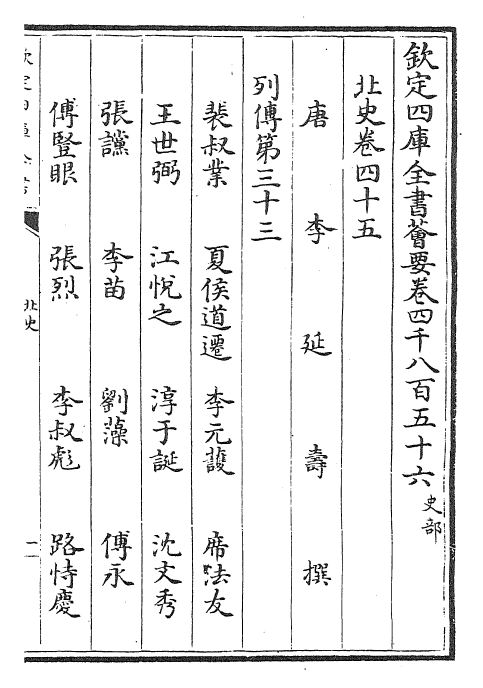 欽定四庫全書薈要卷四千八百五十六史部
北史卷四十五
唐李延壽撰
列傳第三十三
裴叔業 夏侯道遷 李元護 席法友
王世弼 江悅之 淳于誕 沈文秀
張讜 李苗 劉藻 傅永
傅豎眼 張烈 李叔彪 路恃慶
北史
一